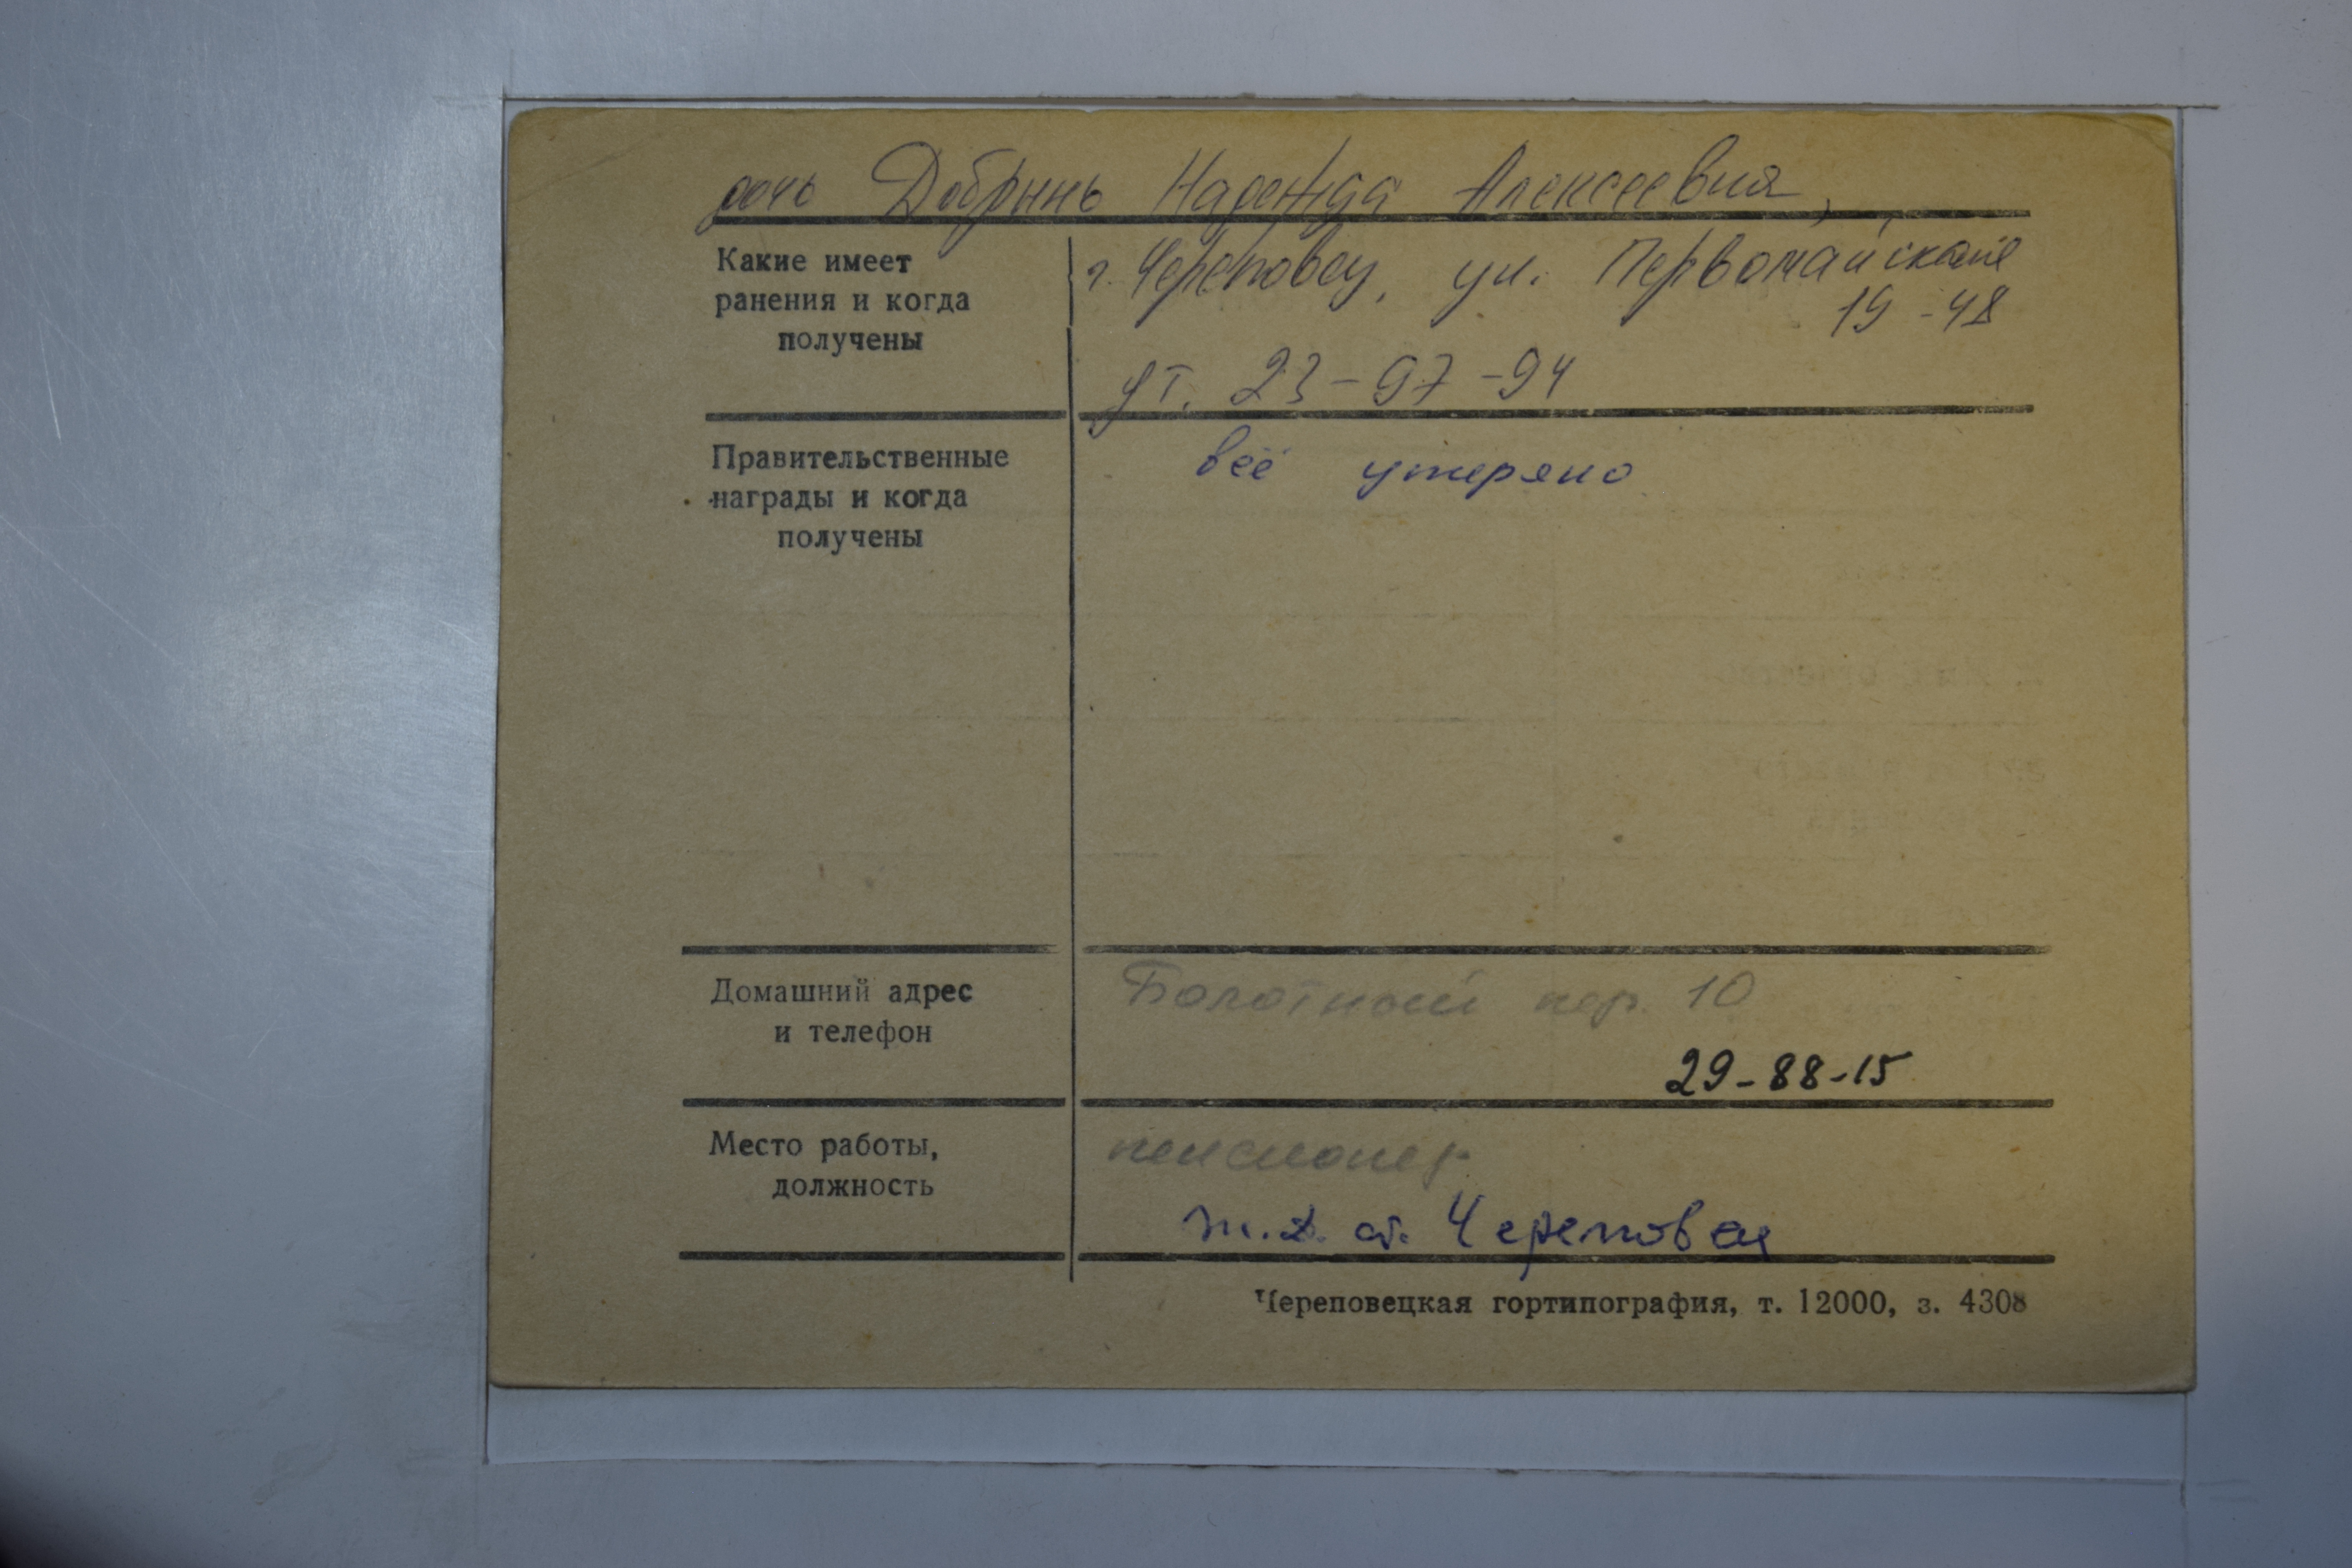 дочь Добрынь Надежда Алексеевна,
Какие имеет
ранения и когда
получены
г. Череповец, ул. Первомайская
19-48
дт. 23-97-94
Правительственные
награды и когда
получены
всё утеряно
Домашний адрес
и телефон
Болотный пер. 10
29-88-15
Место работы,
должность
пенсионер
ж.д. ст. Череповец
Череповецкая гортипография, т. 12000, з. 4308